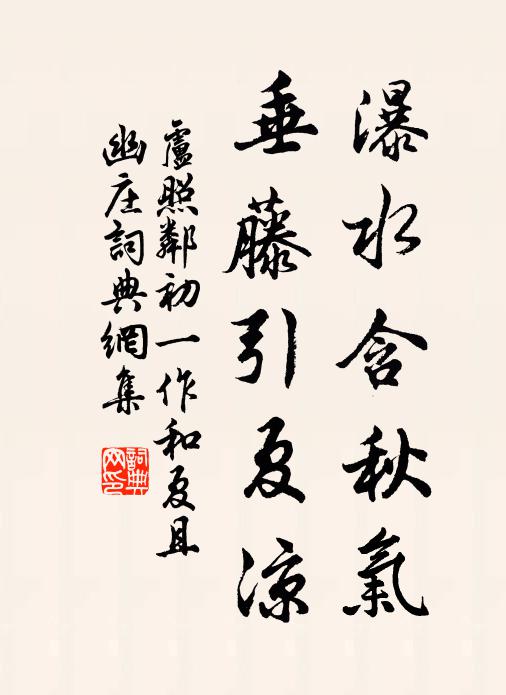 瀑水含秋氣
垂藤引夏涼
盧照鄰初一作和夏且
幽庄詞典網集
詞典
网印